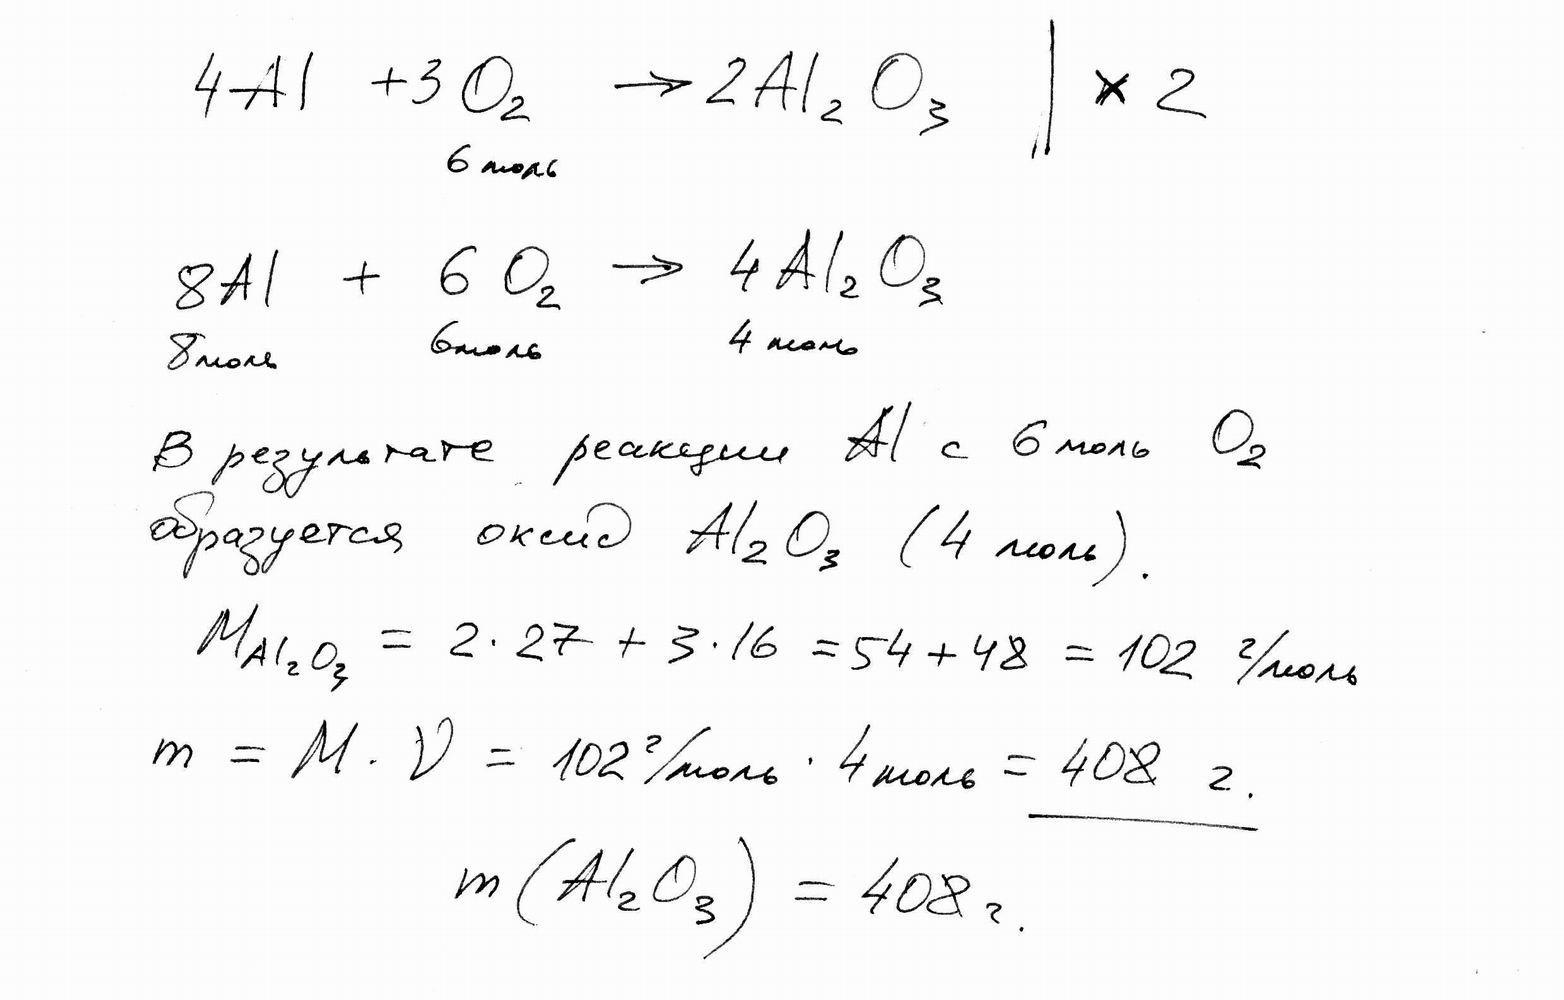 4Al + 3O₂ → 2Al₂O₃ | × 2
6 моль
8Al + 6O₂ → 4Al₂O₃
8 моль 6 моль 4 моль
В результате реакции Al с 6 моль O₂
образуется оксид Al₂O₃ (4 моль).
M Al₂O₃ = 2·27 + 3·16 = 54 + 48 = 102 г/моль
m = M · ν = 102 г/моль · 4 моль = 408 г.
m (Al₂O₃) = 408 г.